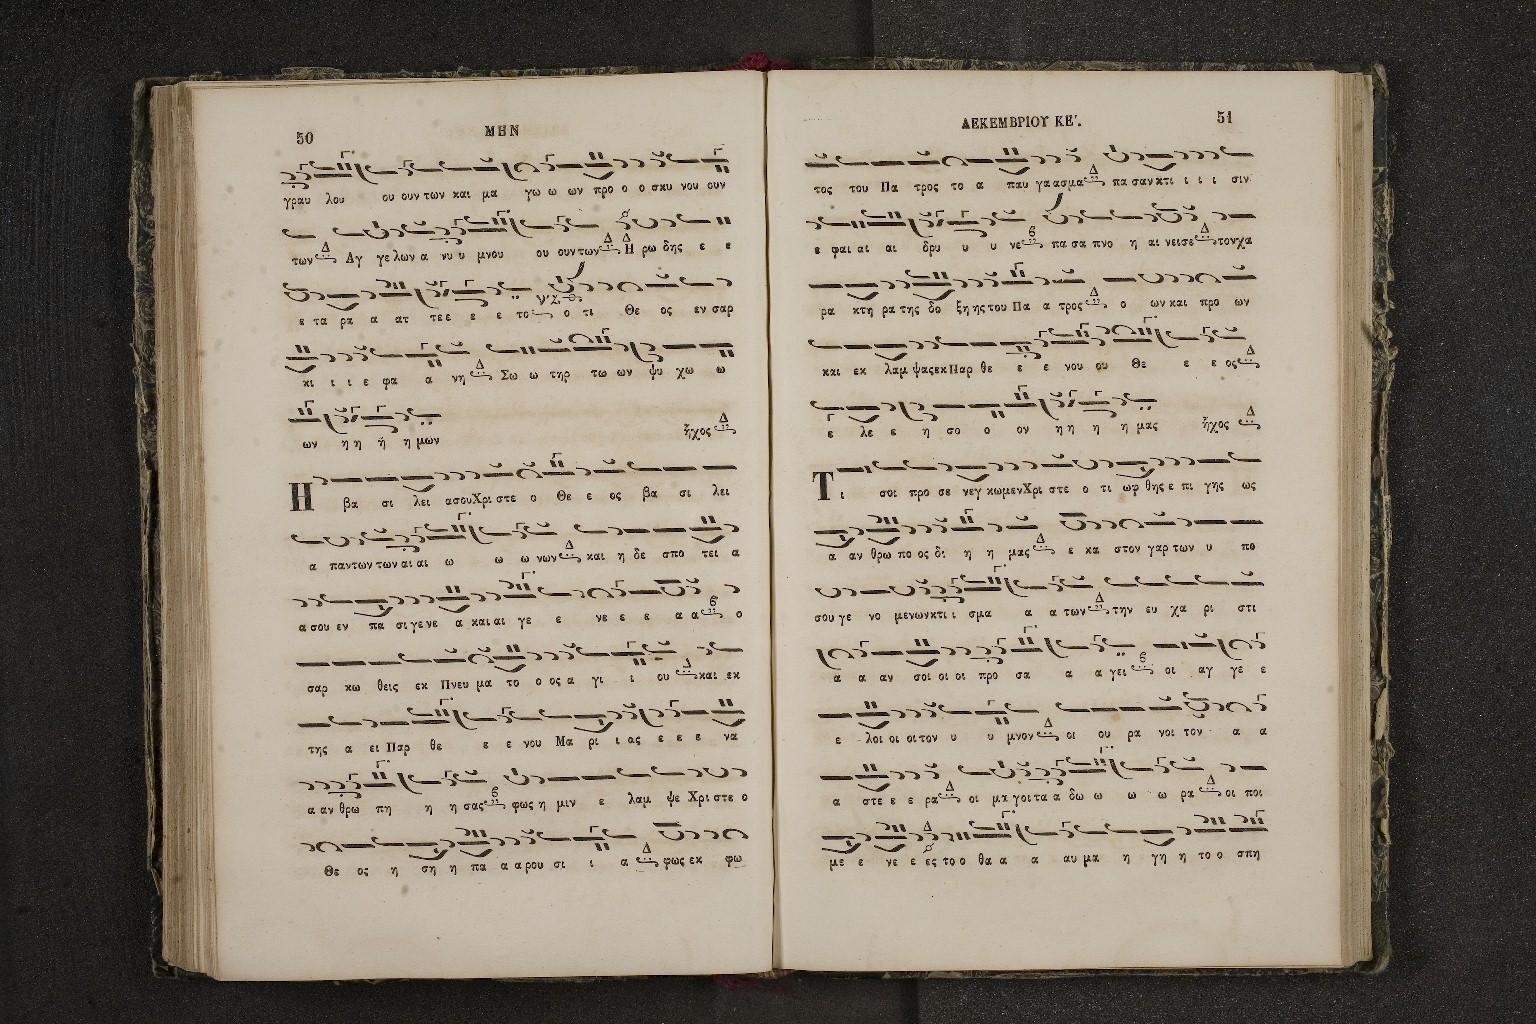 50
ΜΗΝ
γραυ λου ου ουν των και μα γω ω ων προ ο ο σκυ νου ουν
των Δ Αγ γε λων α νυ υ μνου ου ουν των Δ Η ρω δης ε ε
ε τα ρα α ατ τε ε ε ε το ο τι Θε ος εν σαρ
κι ι ι ε φα α νη Δ Σω ω τηρ τω ων ψυ χω ω
ων η η ή η μων ἦχος Δ
Η βα σι λει α σου Χρι στε ο Θε ε ος βα σι λει
α παντων των αι αι ω ω ω νων Δ και η δε σπο τει α
α σου εν πα σι γε νε α και αι γε ε νε ε ε α α ο
σαρ κω θεις εκ Πνευ μα το ο ος α γι ι ου Δ και εκ
της α ει Παρ θε ε ε νου Μα ρι ι ας ε ε ε να
α αν θρω πη η η σας φως η μιν ε λαμ ψε Χρι στε ο
Θε ος η ση η πα α α ρου σι ι α Δ φως εκ φω
ΔΕΚΕΜΒΡΙΟΥ ΚΕ΄.
51
τος του Πα τρος το α παυ γα ασμα Δ πα σαν κτι ι ι ι σιν
ε φαι αι αι δρυ υ υ νε πα σα πνο η αι νει σε Δ τον χα
ρα κτη ρα της δο ξη ης του Πα α τρος Δ ο ων και προ ων
και εκ λαμ ψας εκ Παρ θε ε ε νου ου Θε ε ε ος Δ
ε λε ε η σο ο ον η η η η μας ἦχος Δ
Τ ι σοι προ σε νεγ κωμεν Χρι στε ο τι ωφ θης ε πι γης ως
α αν θρω πο ος δι η η μας Δ ε κα στον γαρ των υ πο
σου γε νο μενων κτι ι σμα α α των Δ την ευ χα ρι στι
α α αν σοι οι οι προ σα α α γει οι αγ γε ε
ε λοι οι οι τον υ υ μνον Δ οι ου ρα νοι τον α α
α στε ε ε ρα Δ οι μα γοι τα α δω ω ω ω ρα Δ οι ποι
με ε νε ε ες το ο θα α α αυ μα η γη η το ο σπη